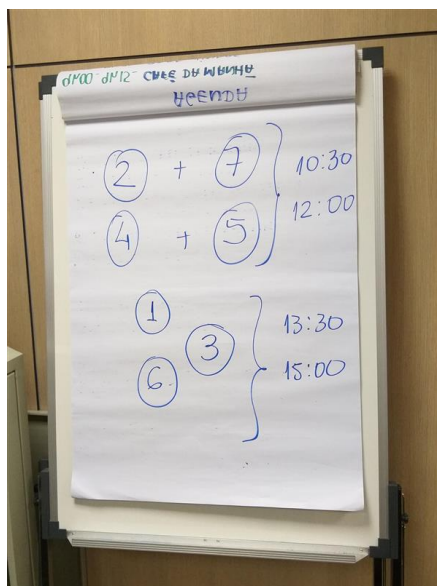 9h00 - 9h15 - CAFÉ DA MANHÃ
AGENDA
2 + 7
10:30
4 + 5
12:00
1
3
6
13:30
15:00